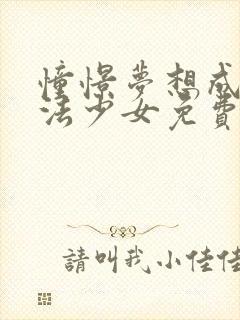 憧憬夢想成
法少女免費
請叫我小佳佳